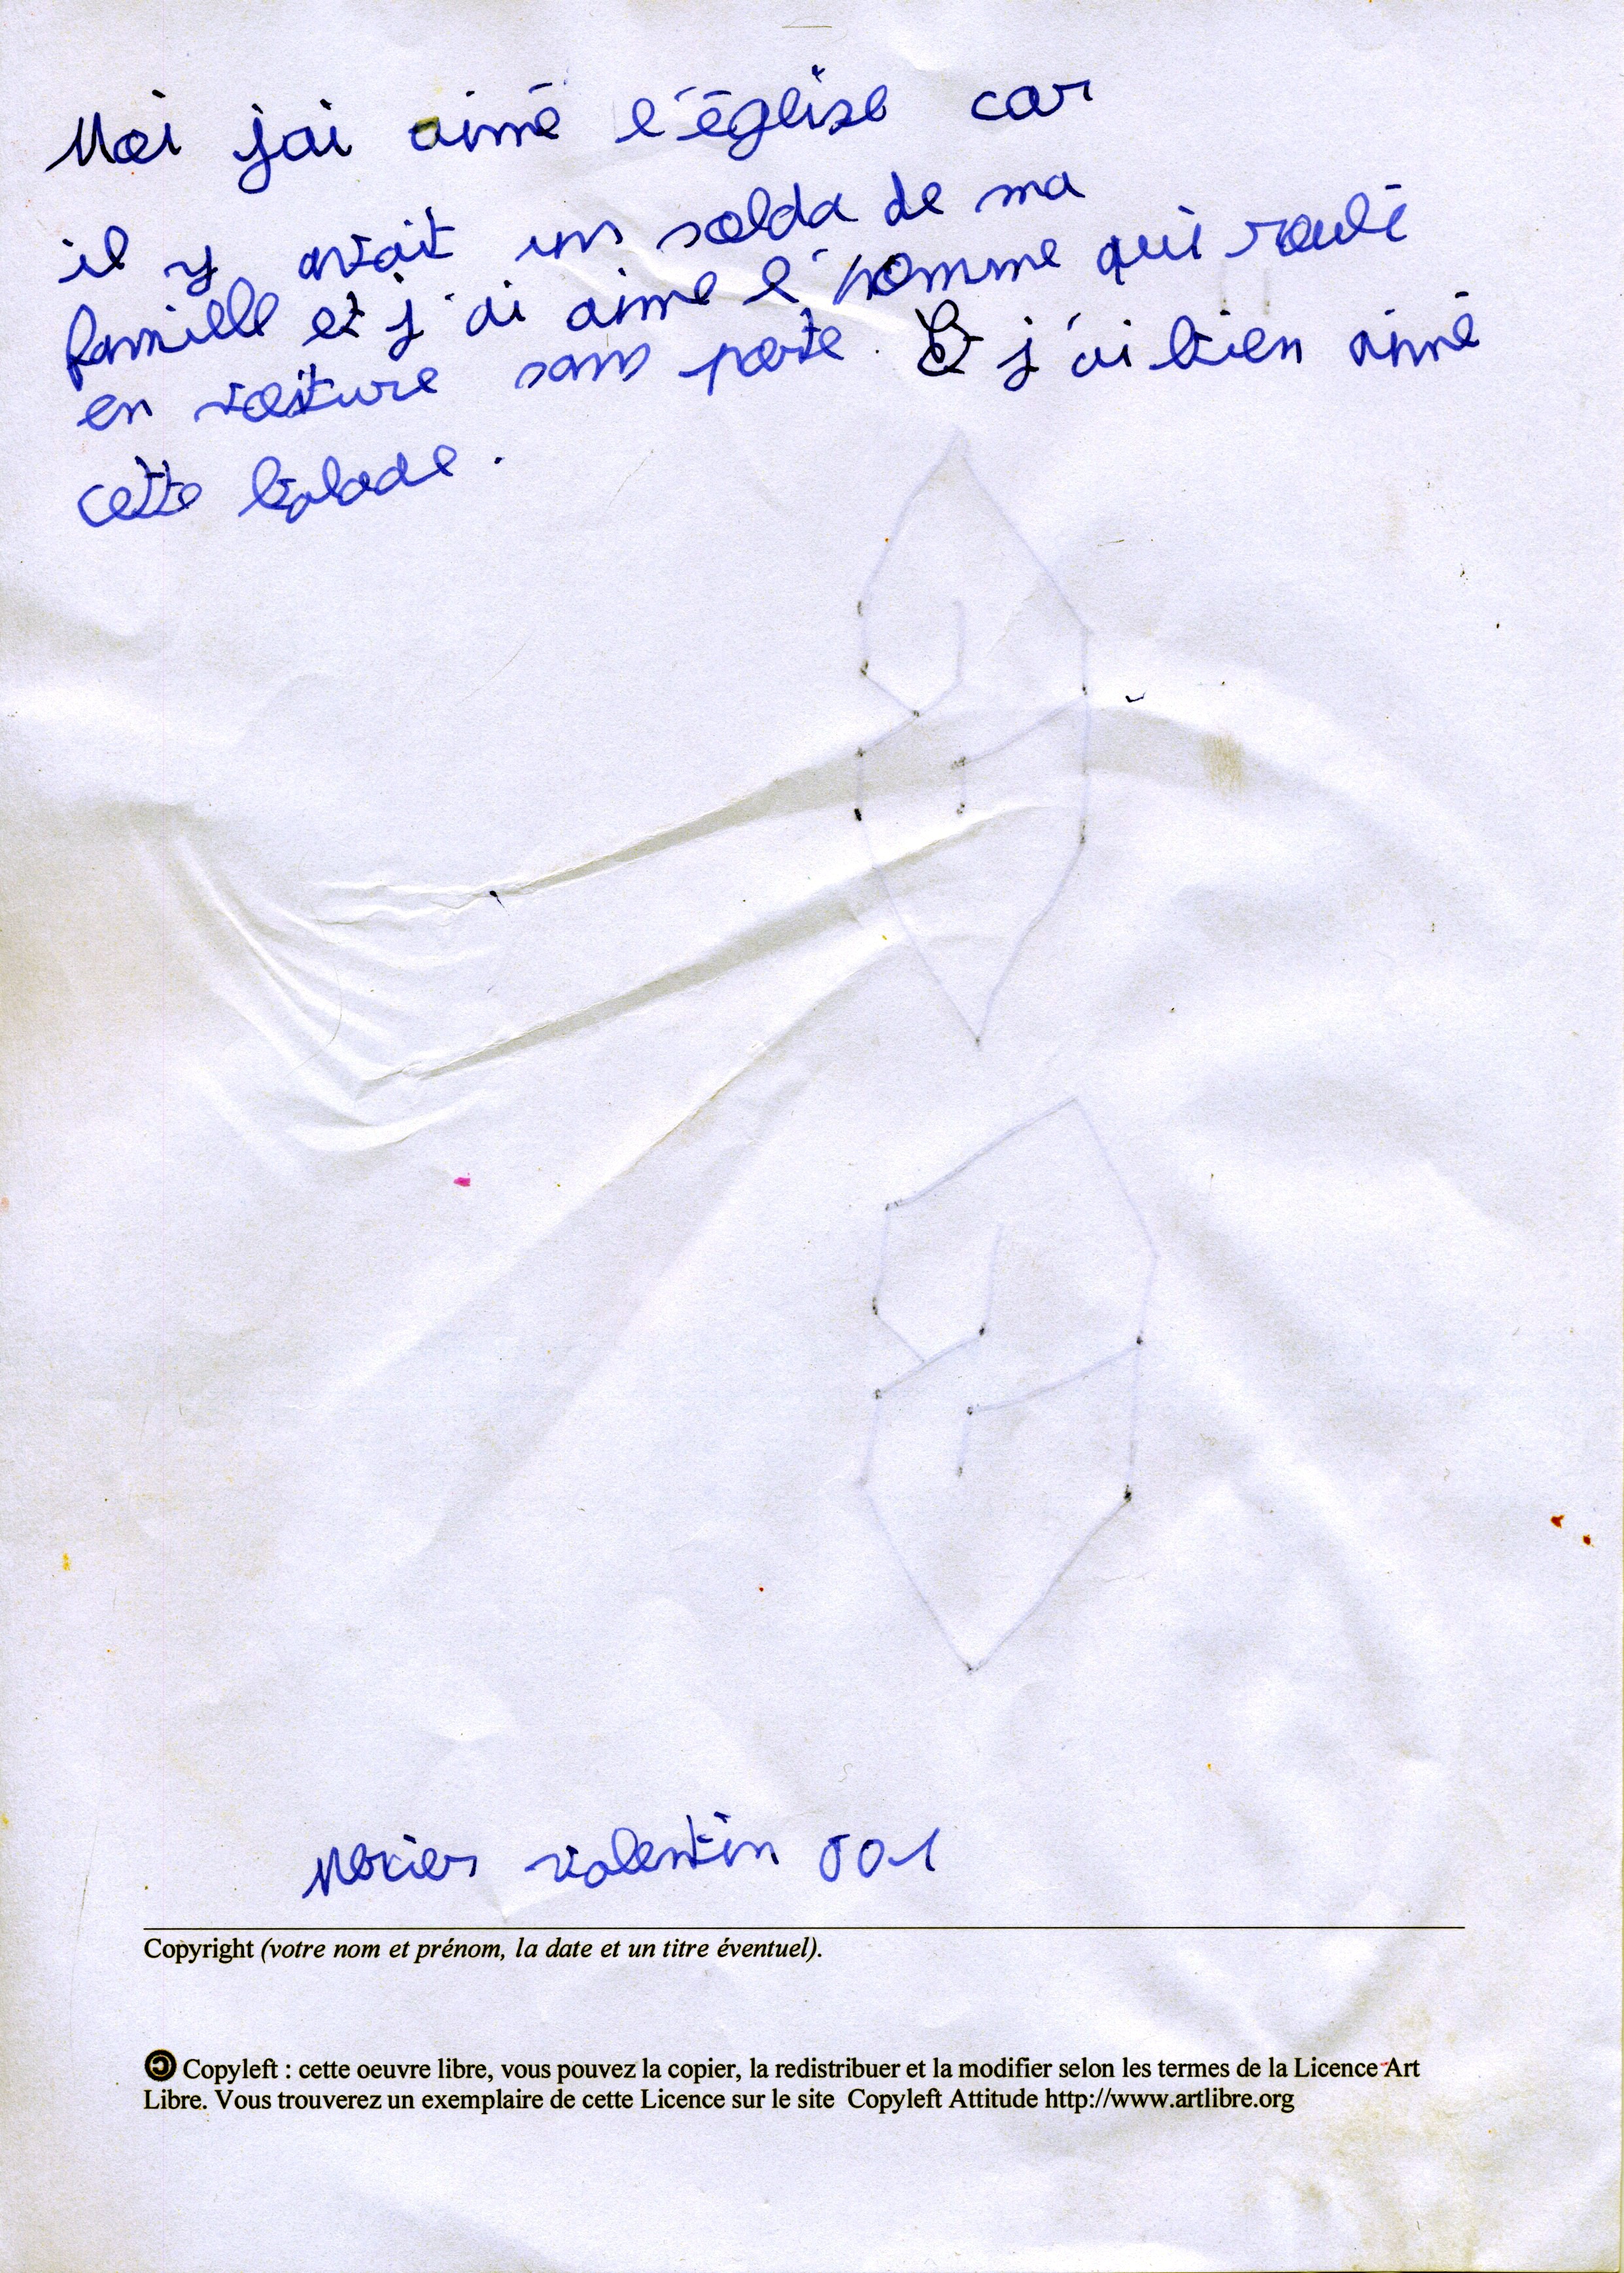 Moi jai aimé l'église car
il y avait un solda de ma
famille et j'ai aimé l'homme qui roulé
en voiture sans porte. Et j'ai bien aimé
cette balade.
valentin 501
Copyright (votre nom et prénom, la date et un titre éventuel).
Copyleft : cette oeuvre libre, vous pouvez la copier, la redistribuer et la modifier selon les termes de la Licence Art
Libre. Vous trouverez un exemplaire de cette Licence sur le site Copyleft Attitude http://www.artlibre.org